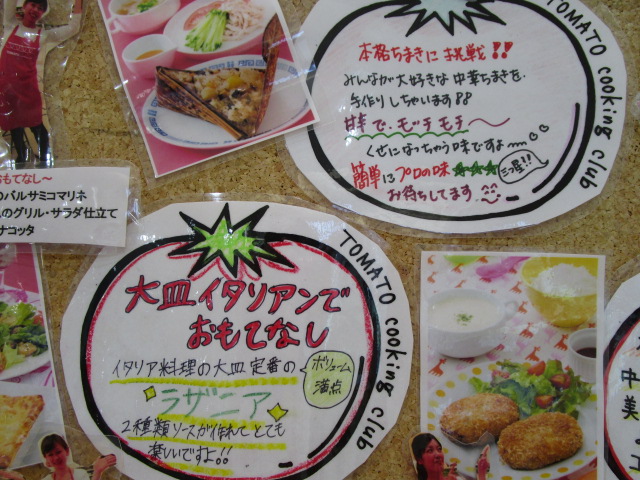 TOMATO cooking club
本格ちまきに挑戦!!
みんなが大好きな中華ちまきを
手作りしちゃいます!!
甘辛で、モッチモチ〜
くせになっちゃう味ですよ〜
簡単にプロの味★★★
三つ星!!
お待ちしてます
おもてなし〜
のバルサミコマリネ
のグリル・サラダ仕立て
ナコッタ
TOMATO cooking club
大皿イタリアンで
おもてなし
イタリア料理の大皿定番の
ボリューム
満点
ラザニア
2種類ソースが作れて とても
楽しいですよ!!
中
美